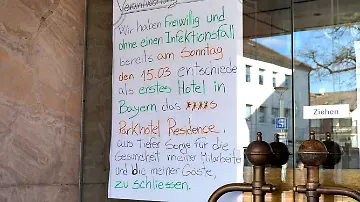 Verantwortung
Wir haben Freiwillig und
ohne einen Infektionsfall
bereits am Sonntag
den 15.03 entschieden
als erstes Hotel in
Bayern das ****s
Parkhotel Residence,
aus tiefer Sorge für die
Gesundheit meiner Mitarbeiter
und die meiner Gäste,
zu schliessen.
Ziehen